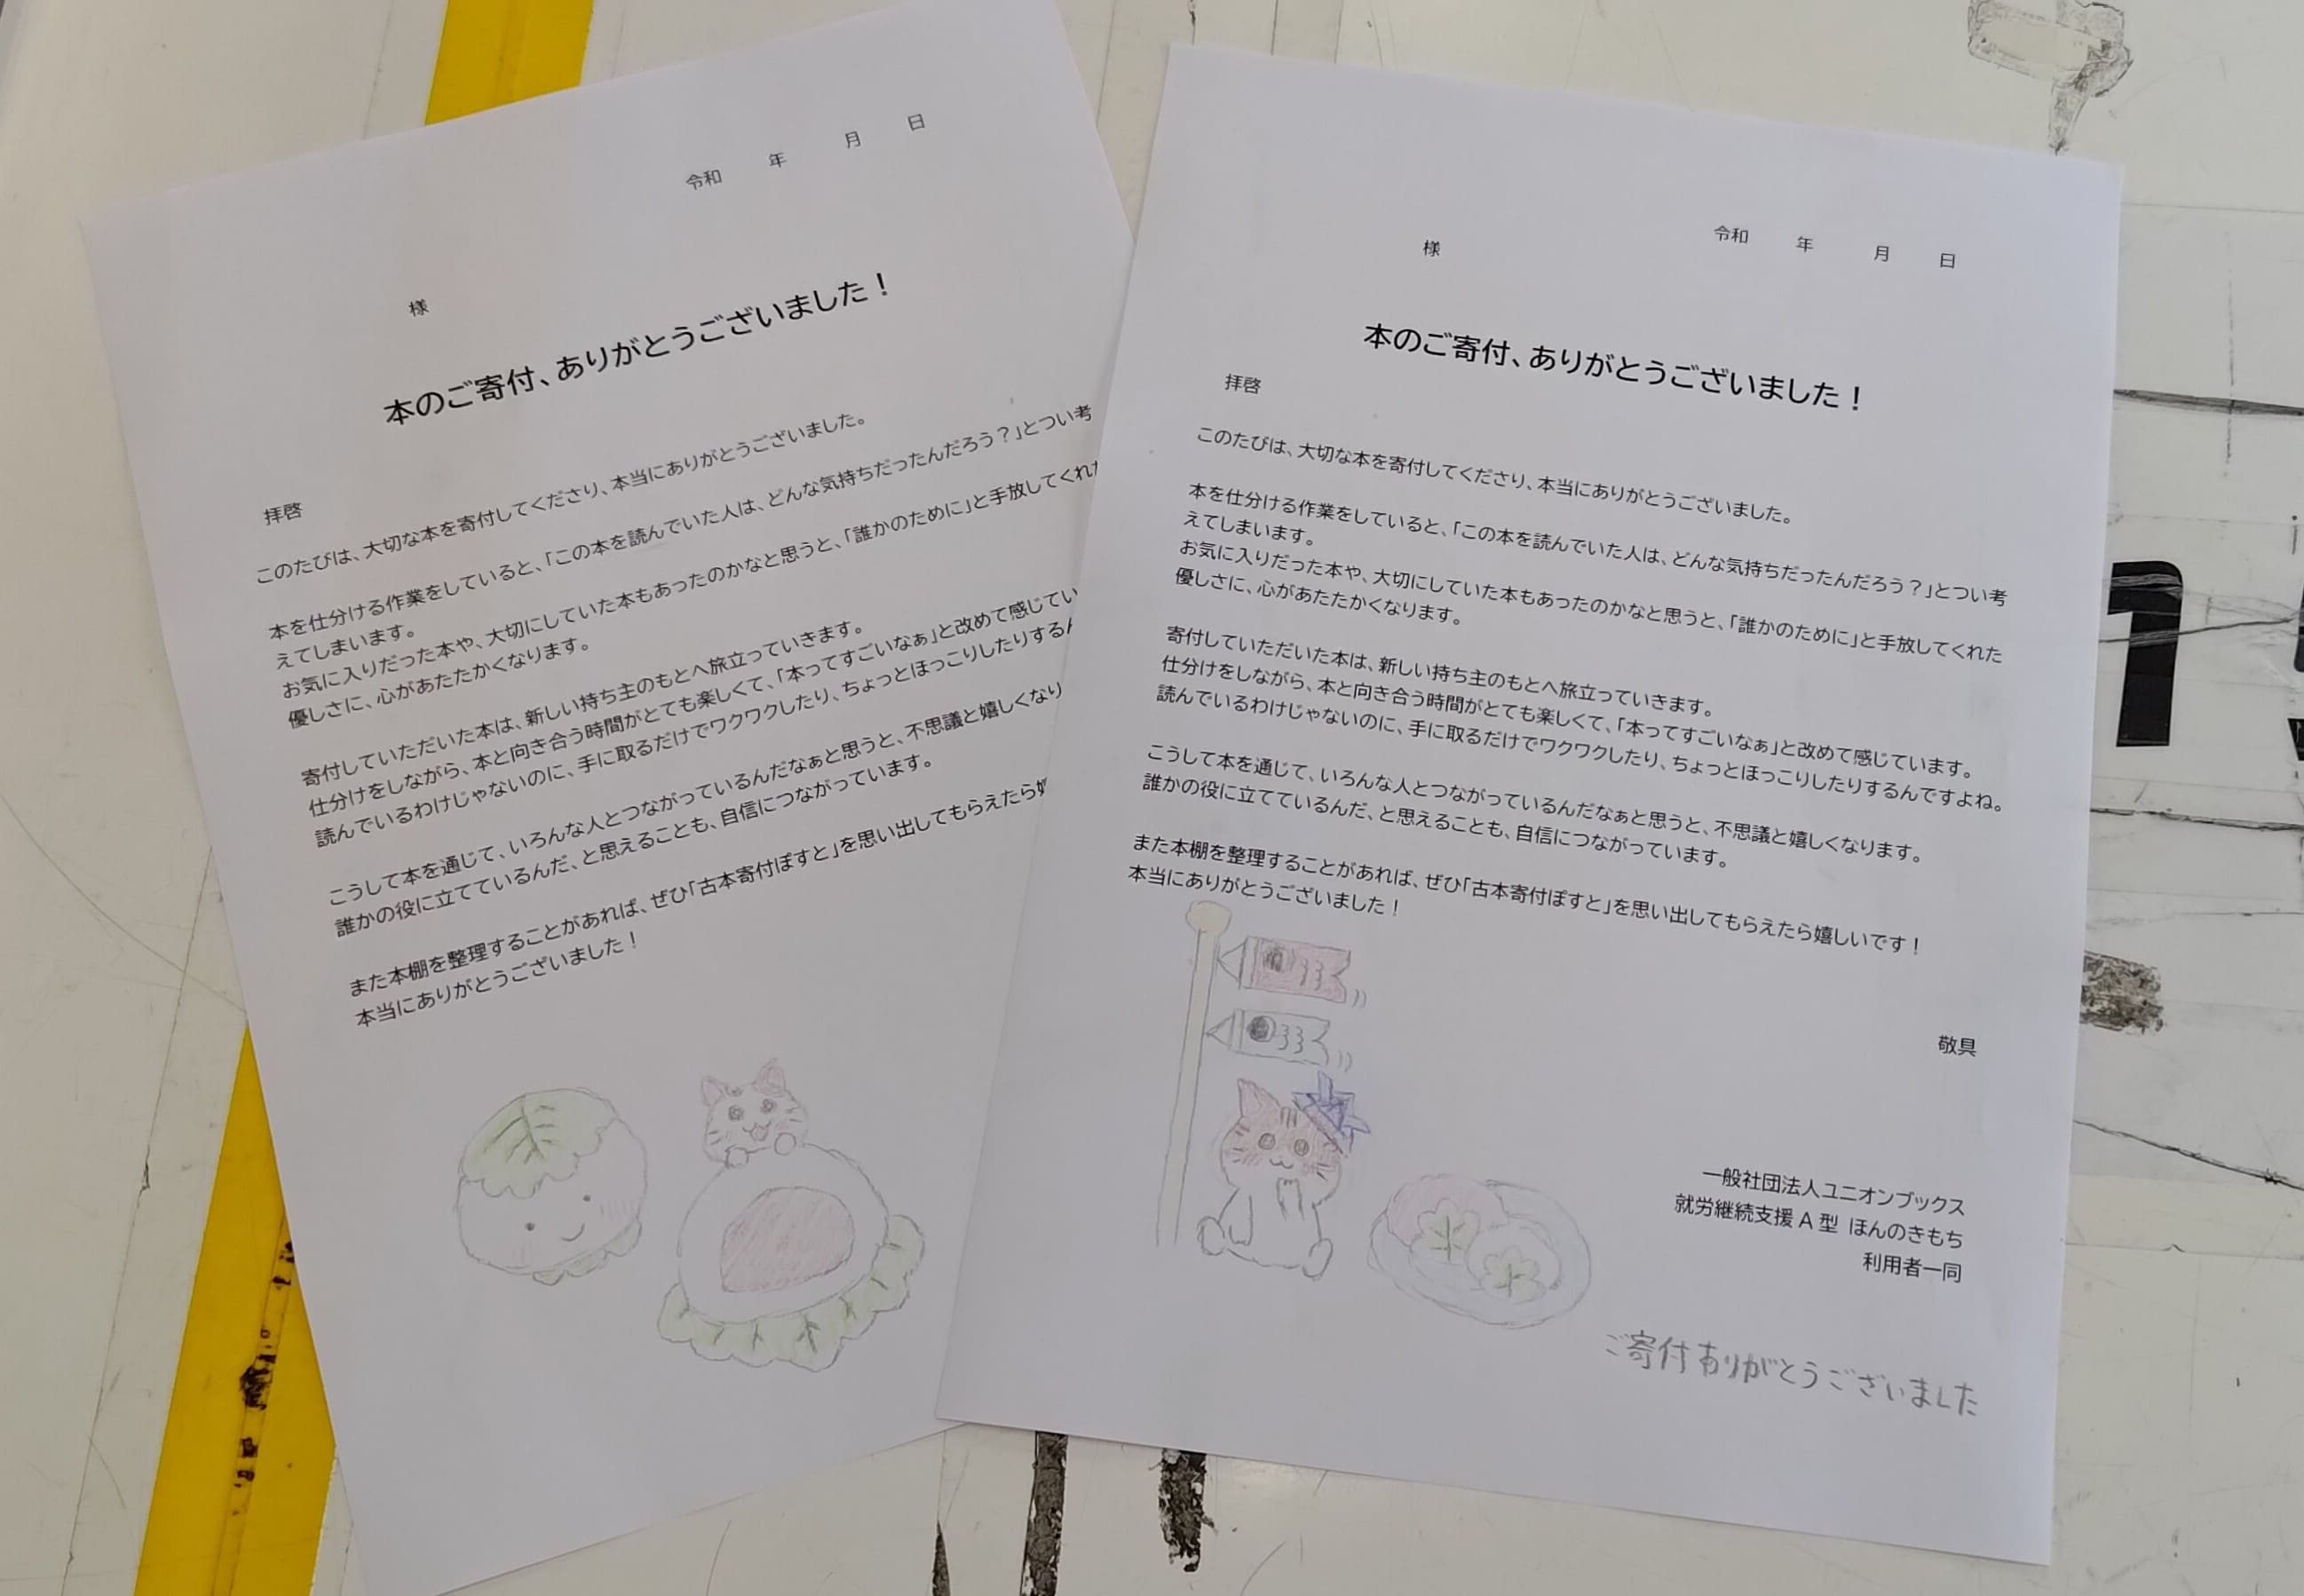 令和 年 月 日
様
本のご寄付、ありがとうございました！
拝啓
このたびは、大切な本を寄付してくださり、本当にありがとうございました。
本を仕分ける作業をしていると、「この本を読んでいた人は、どんな気持ちだったんだろう？」とつい考
えてしまいます。
お気に入りだった本や、大切にしていた本もあったのかなと思うと、「誰かのために」と手放してくれた
優しさに、心があたたかくなります。
寄付していただいた本は、新しい持ち主のもとへ旅立っていきます。
仕分けをしながら、本と向き合う時間がとても楽しくて、「本ってすごいなぁ」と改めて感じてい
読んでいるわけじゃないのに、手に取るだけでワクワクしたり、ちょっとほっこりしたりする
こうして本を通じて、いろんな人とつながっているんだなぁと思うと、不思議と嬉しくなり
誰かの役に立てているんだ、と思えることも、自信につながっています。
また本棚を整理することがあれば、ぜひ「古本寄付ぽすと」を思い出してもらえたら
本当にありがとうございました！
令和 年 月 日
様
本のご寄付、ありがとうございました！
拝啓
このたびは、大切な本を寄付してくださり、本当にありがとうございました。
本を仕分ける作業をしていると、「この本を読んでいた人は、どんな気持ちだったんだろう？」とつい考
えてしまいます。
お気に入りだった本や、大切にしていた本もあったのかなと思うと、「誰かのために」と手放してくれた
優しさに、心があたたかくなります。
寄付していただいた本は、新しい持ち主のもとへ旅立っていきます。
仕分けをしながら、本と向き合う時間がとても楽しくて、「本ってすごいなぁ」と改めて感じています。
読んでいるわけじゃないのに、手に取るだけでワクワクしたり、ちょっとほっこりしたりするんですよね。
こうして本を通じて、いろんな人とつながっているんだなぁと思うと、不思議と嬉しくなります。
誰かの役に立てているんだ、と思えることも、自信につながっています。
また本棚を整理することがあれば、ぜひ「古本寄付ぽすと」を思い出してもらえたら嬉しいです！
本当にありがとうございました！
敬具
一般社団法人ユニオンブックス
就労継続支援 A 型 ほんのきもち
利用者一同
ご寄付ありがとうございました
1